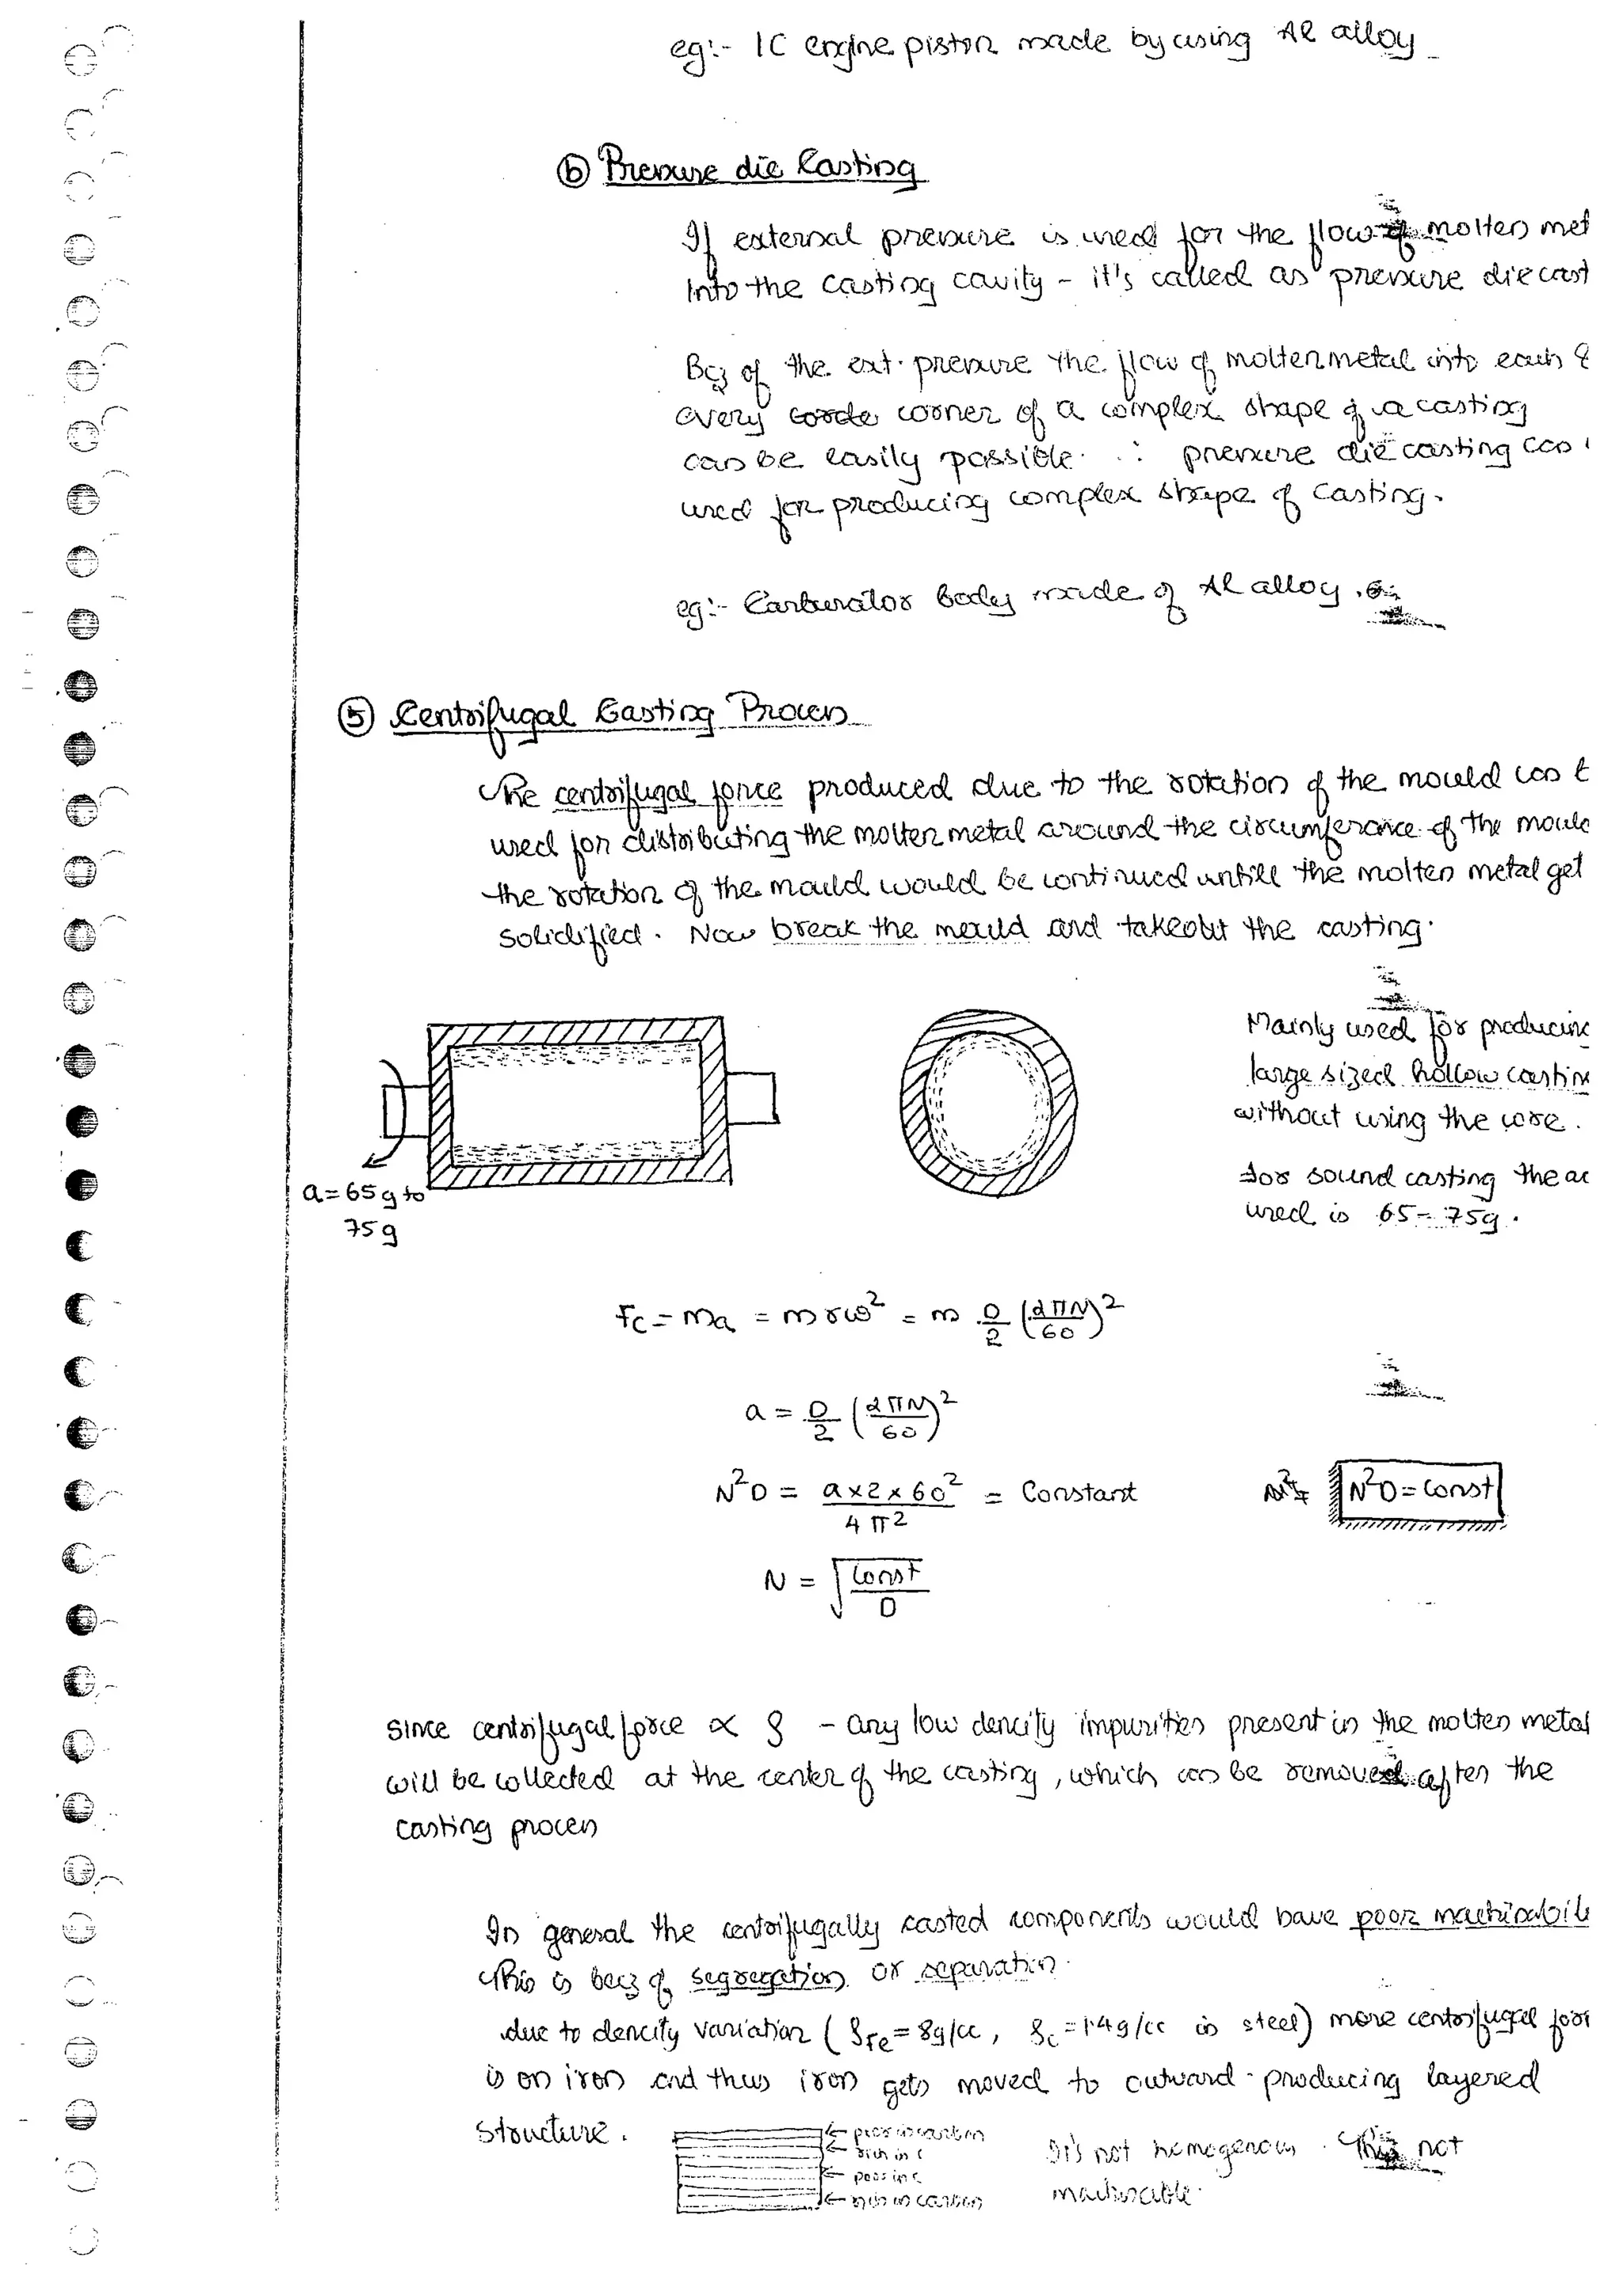 eg:- IC engine piston made by using Al alloy
ⓑ Pressure die Casting
If external pressure is used for the flow of molten met
into the casting cavity - it's called as pressure die cast
Bcz of the ext. pressure the flow of molten metal into each &
every corner of a complex shape of a casting
can be easily possible. ∴ pressure die casting can
used for producing complex shape of casting.
eg:- Carburator body made of Al alloy.
⑤ Centrifugal Casting Process
The centrifugal force produced due to the rotation of the mould can b
used for distributing the molten metal around the circumference of the mould
the rotation of the mould would be continued untill the molten metal get
solidified. Now break the mould and takeout the casting.
Mainly used for producing
large sized hollow casting
without using the core.
for sound casting the ac
used is 65-75g.
a=65g to
75g
Fc = ma = mrω² = m D/2 (2πN/60)²
a = D/2 (2πN/60)²
N²D = a×2×60²/4π² = Constant
N²D = Const
N = √Const/D
Since centrifugal force ∝ ρ - any low dencity impurities present in the molten metal
will be collected at the center of the casting, which can be removed after the
casting process
In general the centrifugally casted components would have poor machinabili
This is becz of segregation or separation.
due to dencity variation (ρFe = 8g/cc, ρc = 1.4g/cc in steel) more centrifugal for
is on iron and thus iron gets moved to outward - producing layered
structure.
poor in carbon
rich in C
poor in C
rich in carbon
It's not homogenous. This not
machinable.